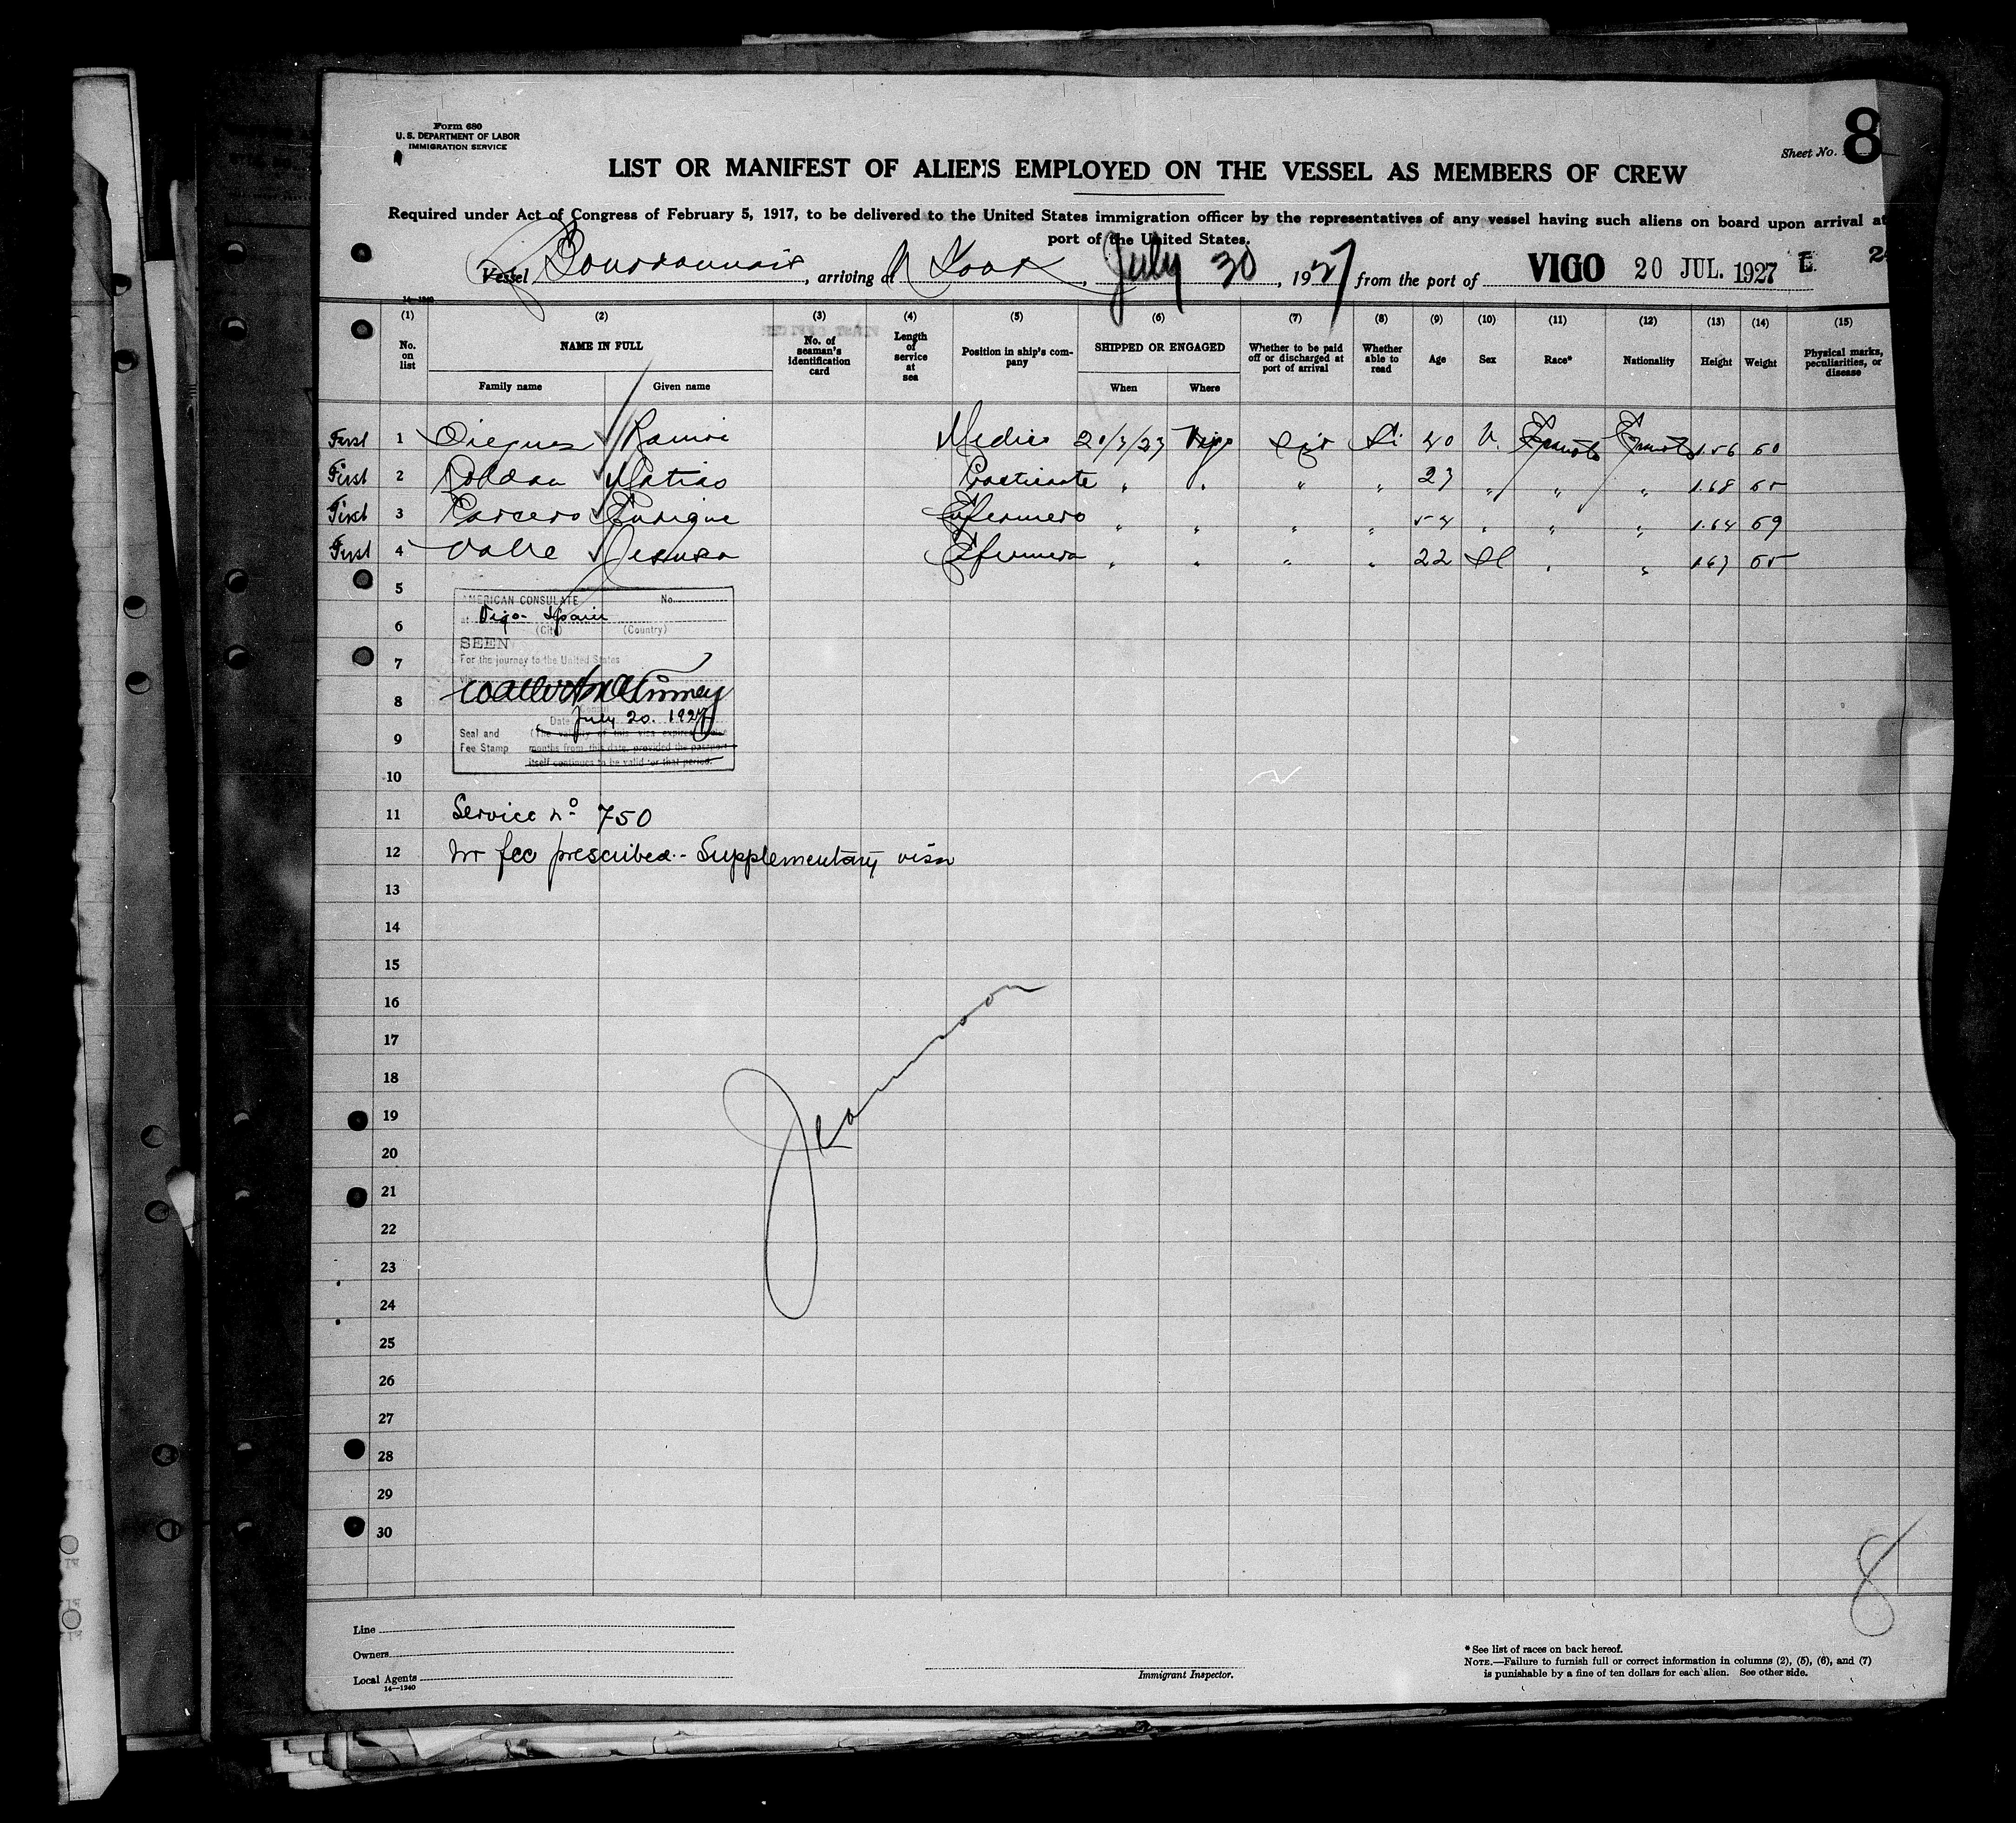 Form 680
U. S. DEPARTMENT OF LABOR
IMMIGRATION SERVICE
Sheet No. 8
LIST OR MANIFEST OF ALIENS EMPLOYED ON THE VESSEL AS MEMBERS OF CREW
Required under Act of Congress of February 5, 1917, to be delivered to the United States immigration officer by the representatives of any vessel having such aliens on board upon arrival at
port of the United States.
Vessel , arriving at , July 30 , 1927 from the port of VIGO 20 JUL. 1927 E. 2
14—1940
(1) (2) (3) (4) (5) (6) (7) (8) (9) (10) (11) (12) (13) (14) (15)
No. on list NAME IN FULL Family name Given name No. of seaman's identification card Length of service at sea Position in ship's company SHIPPED OR ENGAGED When Where Whether to be paid off or discharged at port of arrival Whether able to read Age Sex Race* Nationality Height Weight Physical marks, peculiarities, or disease
First 1 Medico Vigo Si 40 1.56 60
First 2 Roldan Matias Practicante " " " " 23 " " " 1.68
First 3 Enrique Enfermero " " " " " " " 1.64 69
First 4 Valle Enfermera " " " " 22 " "
5
6
7
8
9
10
11
12
13
14
15
16
17
18
19
20
21
22
23
24
25
26
27
28
29
30
AMERICAN CONSULATE No.
at Vigo - Spain
(City) (Country)
SEEN
For the journey to the United States
via
Consul
Date July 20. 1927
Seal and (The validity of this visa expires
Fee Stamp months from this date, provided the passport
itself continues to be valid for that period.
Service no 750
No fee prescribed - Supplementary visa
8
Line
Owners
Local Agents
14—1940
Immigrant Inspector.
* See list of races on back hereof.
NOTE.—Failure to furnish full or correct information in columns (2), (5), (6), and (7)
is punishable by a fine of ten dollars for each alien. See other side.